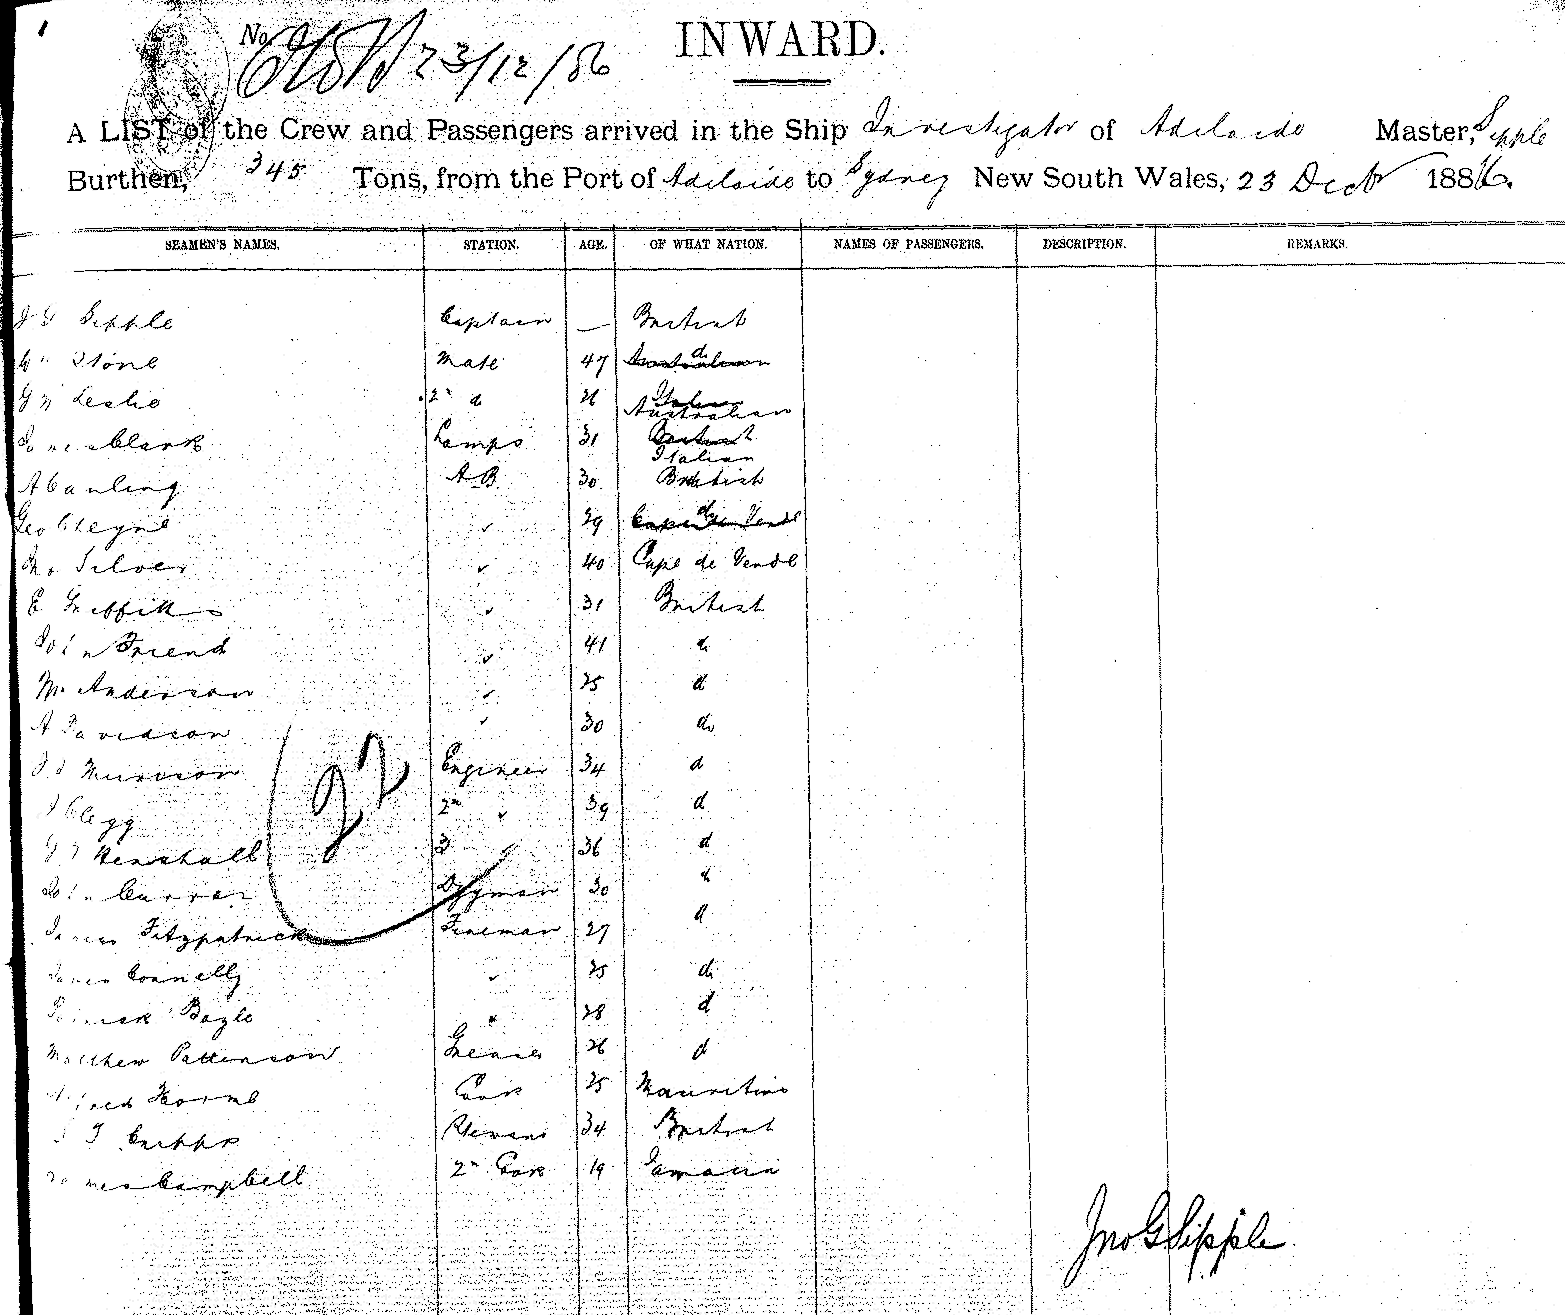 No 23/12/86
INWARD.
A LIST of the Crew and Passengers arrived in the Ship Investigator of Adelaide Master, Sipple
Burthen, 345 Tons, from the Port of Adelaide to Sydney New South Wales, 23 Decr 1886.
SEAMEN'S NAMES. STATION. AGE. OF WHAT NATION. NAMES OF PASSENGERS. DESCRIPTION. REMARKS.
J G Sipple Captain — British
Wm Stone Mate 47 Australian d
G Leslie 2n d 26 Italian Australian
James Clark Lamps 31 British Italian
A Canling AB 30 British
Geo Cheyne 29 Cape de Verde do
Jno Silver 40 Cape de Verde
E Griffiths 31 British
John Friend 41 d
Wm Anderson 25 d
A Davidson 30 do
Murdson Engineer 34 d
J Clegg 2n 39 d
22
Henshall 3 36 d
John Curran 30 d
James Fitzpatrick Fireman 27 d
James Connelly 25 d
Patrick Boyle 28 d
Matthew Pattenson Greaser 26 d
Alfred Thorne Cook 25 Mauritius
T Cripps Steward 34 British
James Campbell 2n Cook 19 Jamacia
Jno G Sipple